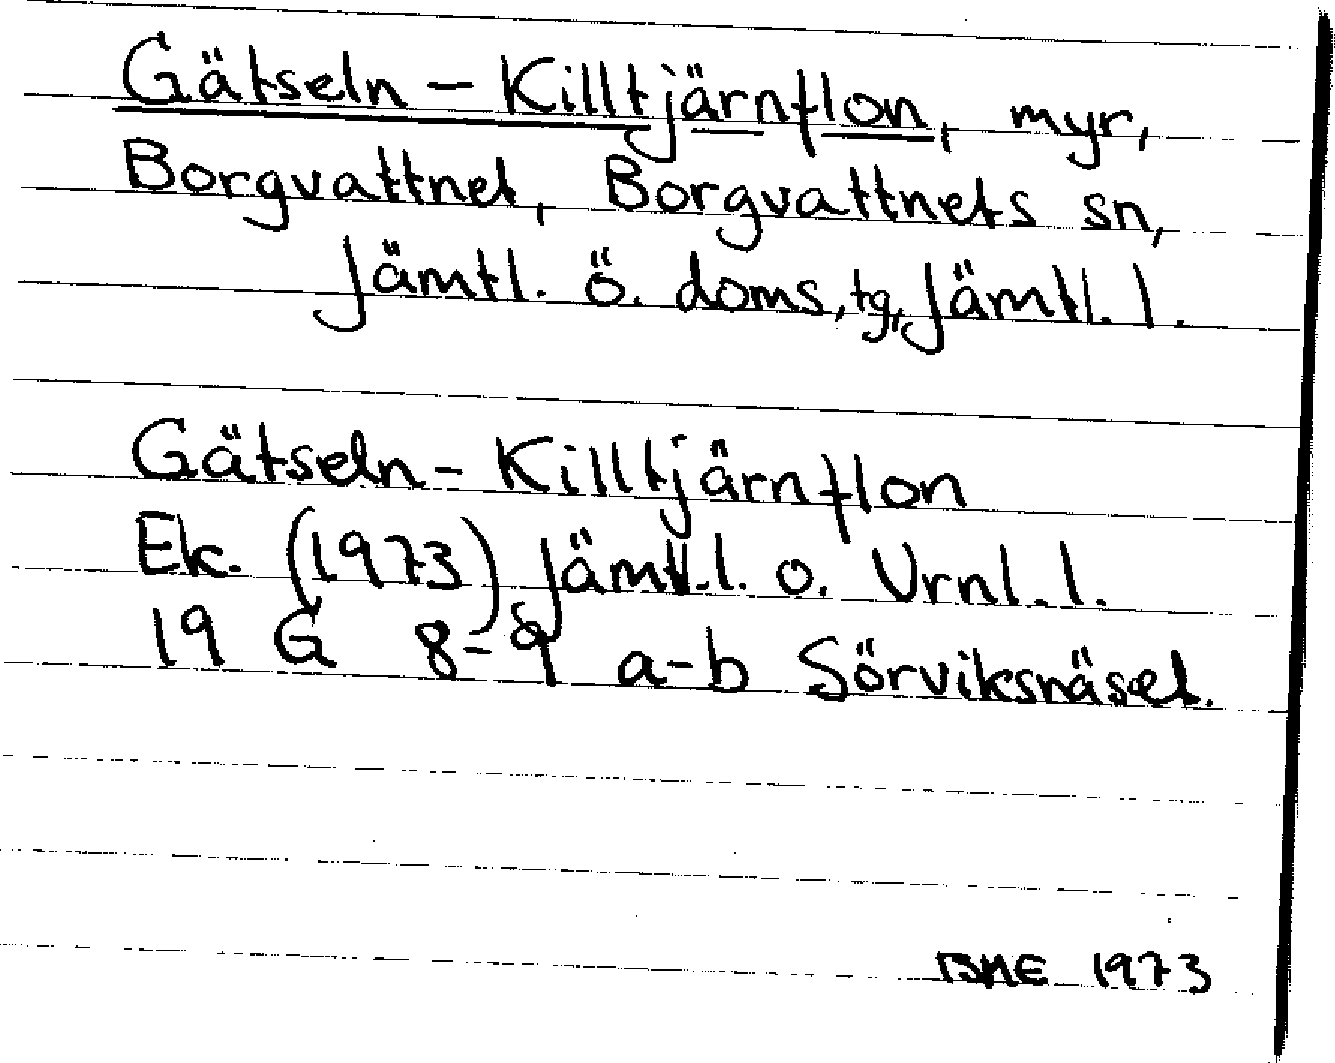 Gätseln - Killtjärnflon, myr,
Borgvattnet, Borgvattnets sn,
Jämtl. ö. doms, tg, Jämtl. l.
Gätseln - Killtjärnflon
Ek. (1973) Jämtl. l. o. Vrnl. l.
19 G 8-9 a-b Sörviksnäset.
BME 1973